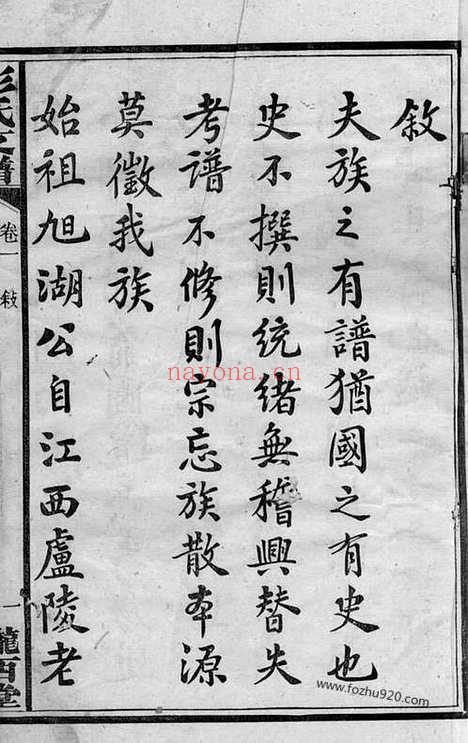 敘
夫族之有譜猶國之有史也
史不撰則統緒無稽興替失
考譜不修則宗忘族散本源
莫徵我族
始祖旭湖公自江西盧陵老
氏支譜
卷一
敘
一
隴西堂
nayona.cn
www.fozhu920.com